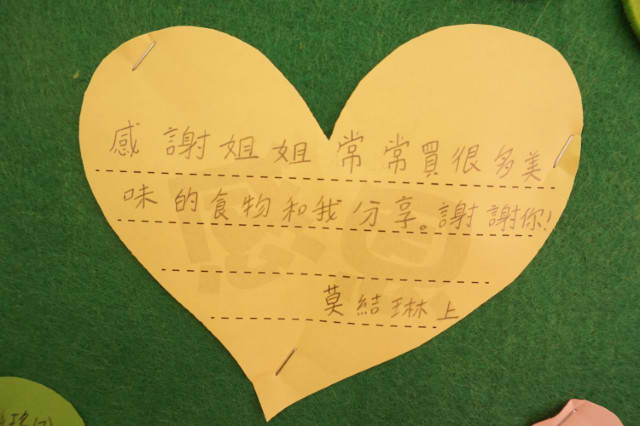 感謝姐姐常常買很多美
味的食物和我分享。謝謝你!
莫結琳上